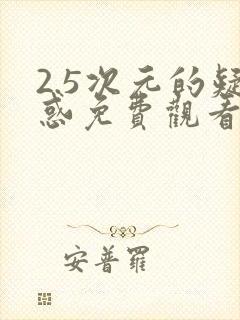 2.5次元的疑
惑免費觀看
安普羅